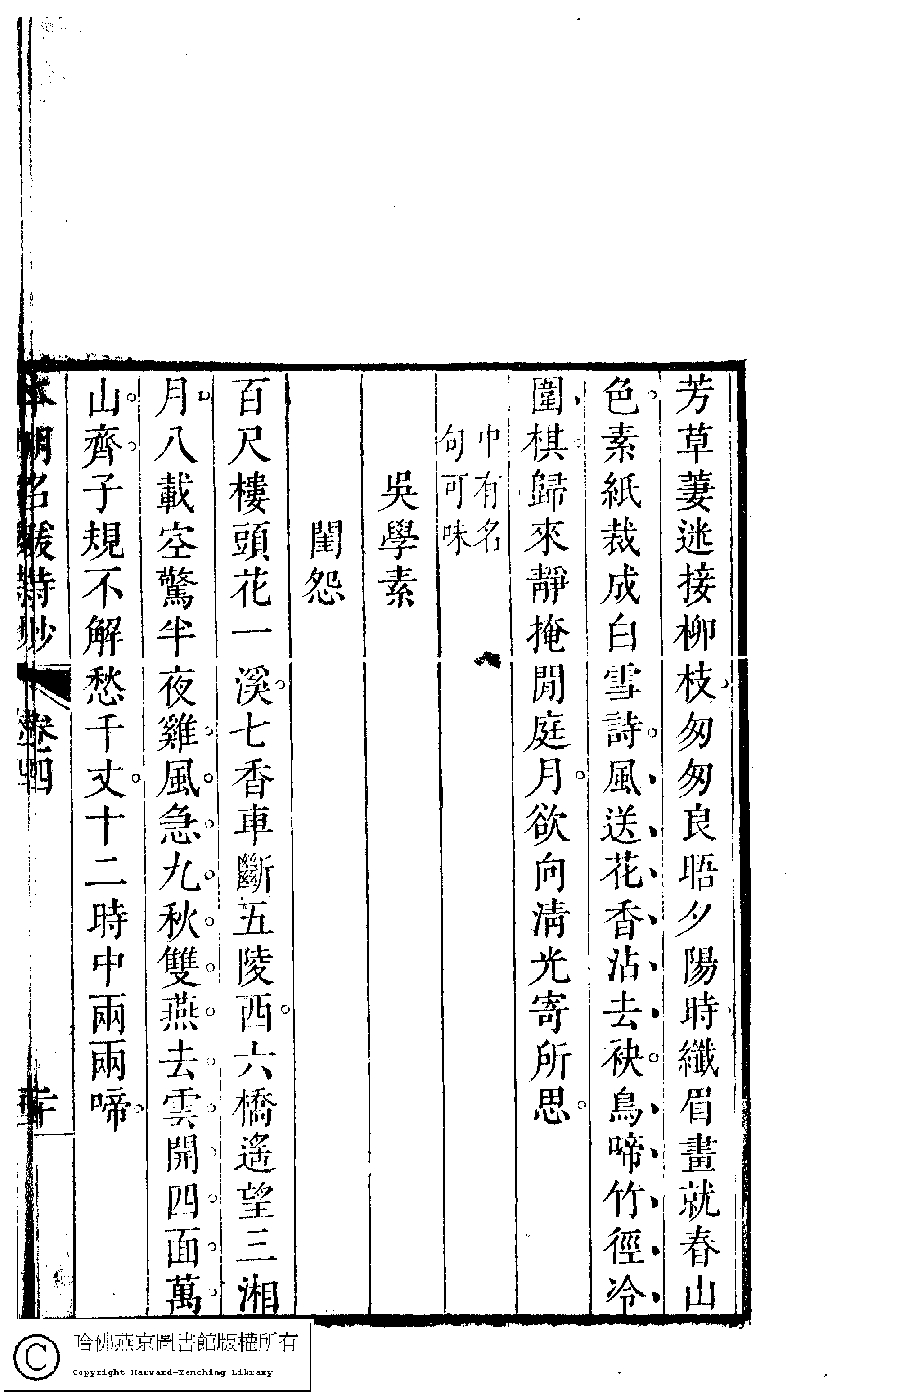 芳草萋迷接柳枝匆匆良晤夕陽時纖眉畫就春山
色素紙裁成白雪詩風送花香沾去袂鳥啼竹徑冷
圍棋歸來靜掩閒庭月欲向清光寄所思
中有名
句可味
吳學素
閨怨
百尺樓頭花一溪七香車斷五陵西六橋遙望三湘
月八載空驚半夜雞風急九秋雙燕去雲開四面萬
山齊子規不解愁千丈十二時中兩兩啼
本朝名媛詩鈔
卷四
二十
哈佛燕京圖書館版權所有
Copyright Harvard-Yenching Library